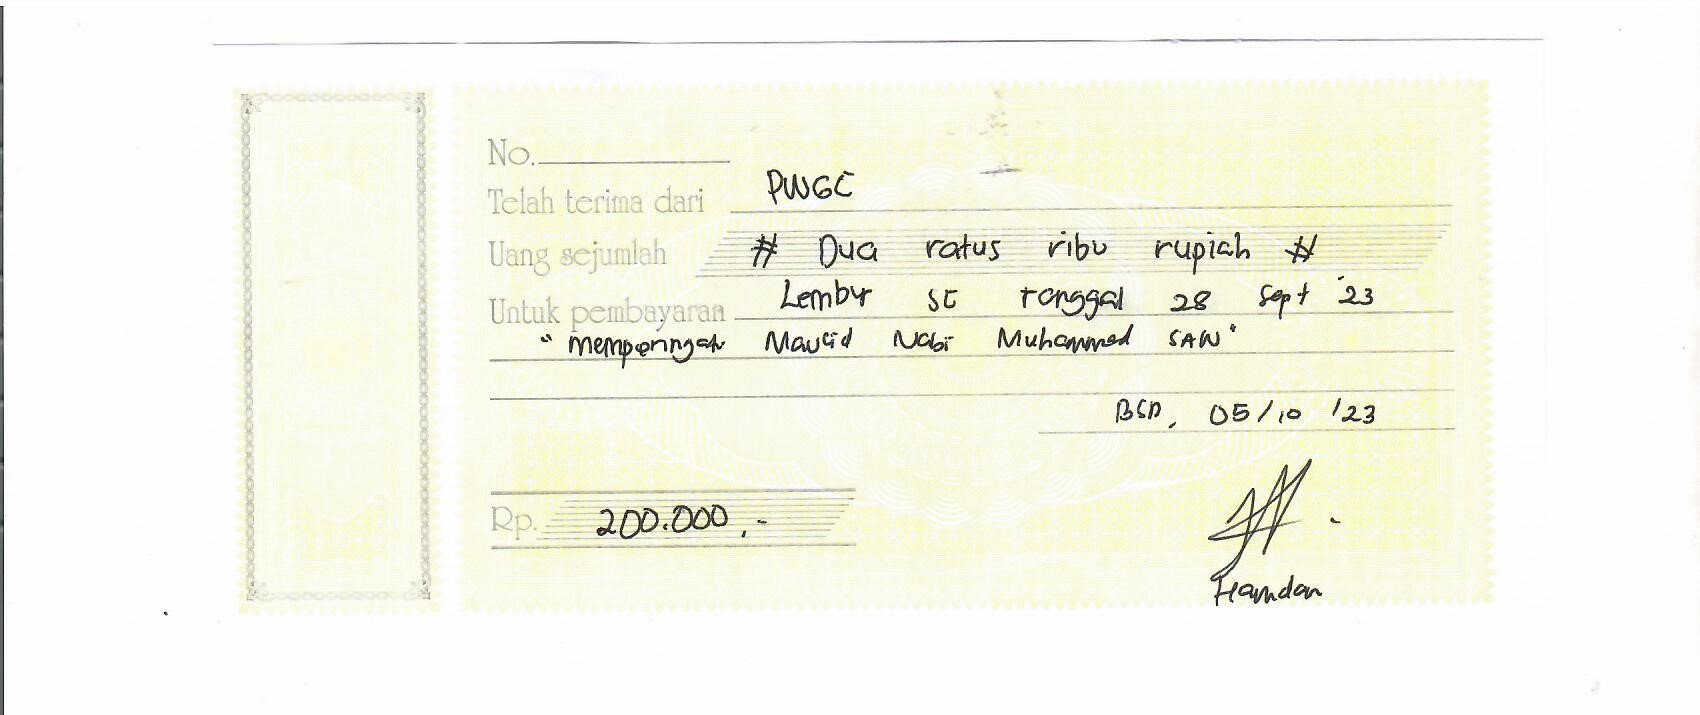 No.
Telah terima dari PWGC
Uang sejumlah # Dua ratus ribu rupiah #
Untuk pembayaran Lembur SE tanggal 28 Sept '23
"memperingati Maulid Nabi Muhammad SAW"
BSD, 05/10 '23
Rp. 200.000,-
Hamdan